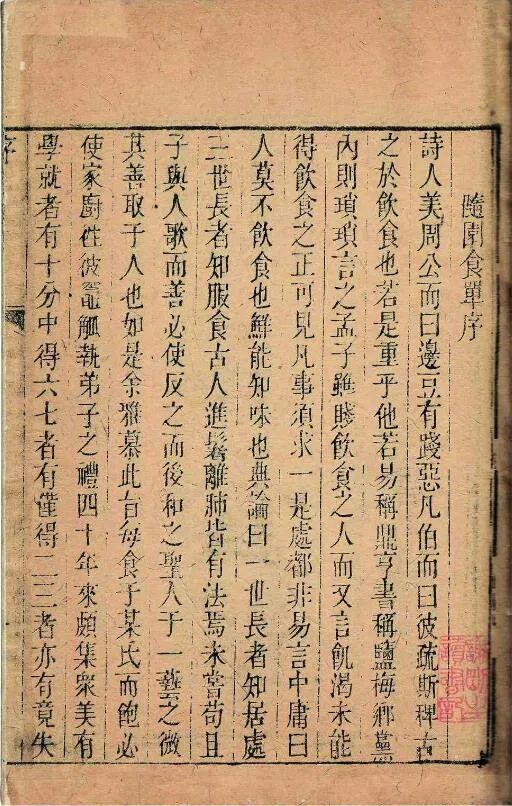 隨園食單序
詩人美周公而曰邊豆有踐惡凡伯而曰彼疏斯稗古
之於飲食也若是重乎他若易稱鼎亨書稱鹽梅鄉黨
內則瑣瑣言之孟子雖賤飲食之人而又言飢渴未能
得飲食之正可見凡事須求一是處都非易言中庸曰
人莫不飲食也鮮能知味也典論曰一世長者知居處
三世長者知服食古人進鬐離肺皆有法焉未嘗苟且
子與人歌而善必使反之而後和之聖人于一藝之微
其善取于人也如是余雅慕此旨每食于某氏而飽必
使家廚往彼竈觚執弟子之禮四十年來頗集衆美有
學就者有十分中得六七者有僅得二三者亦有竟失
序